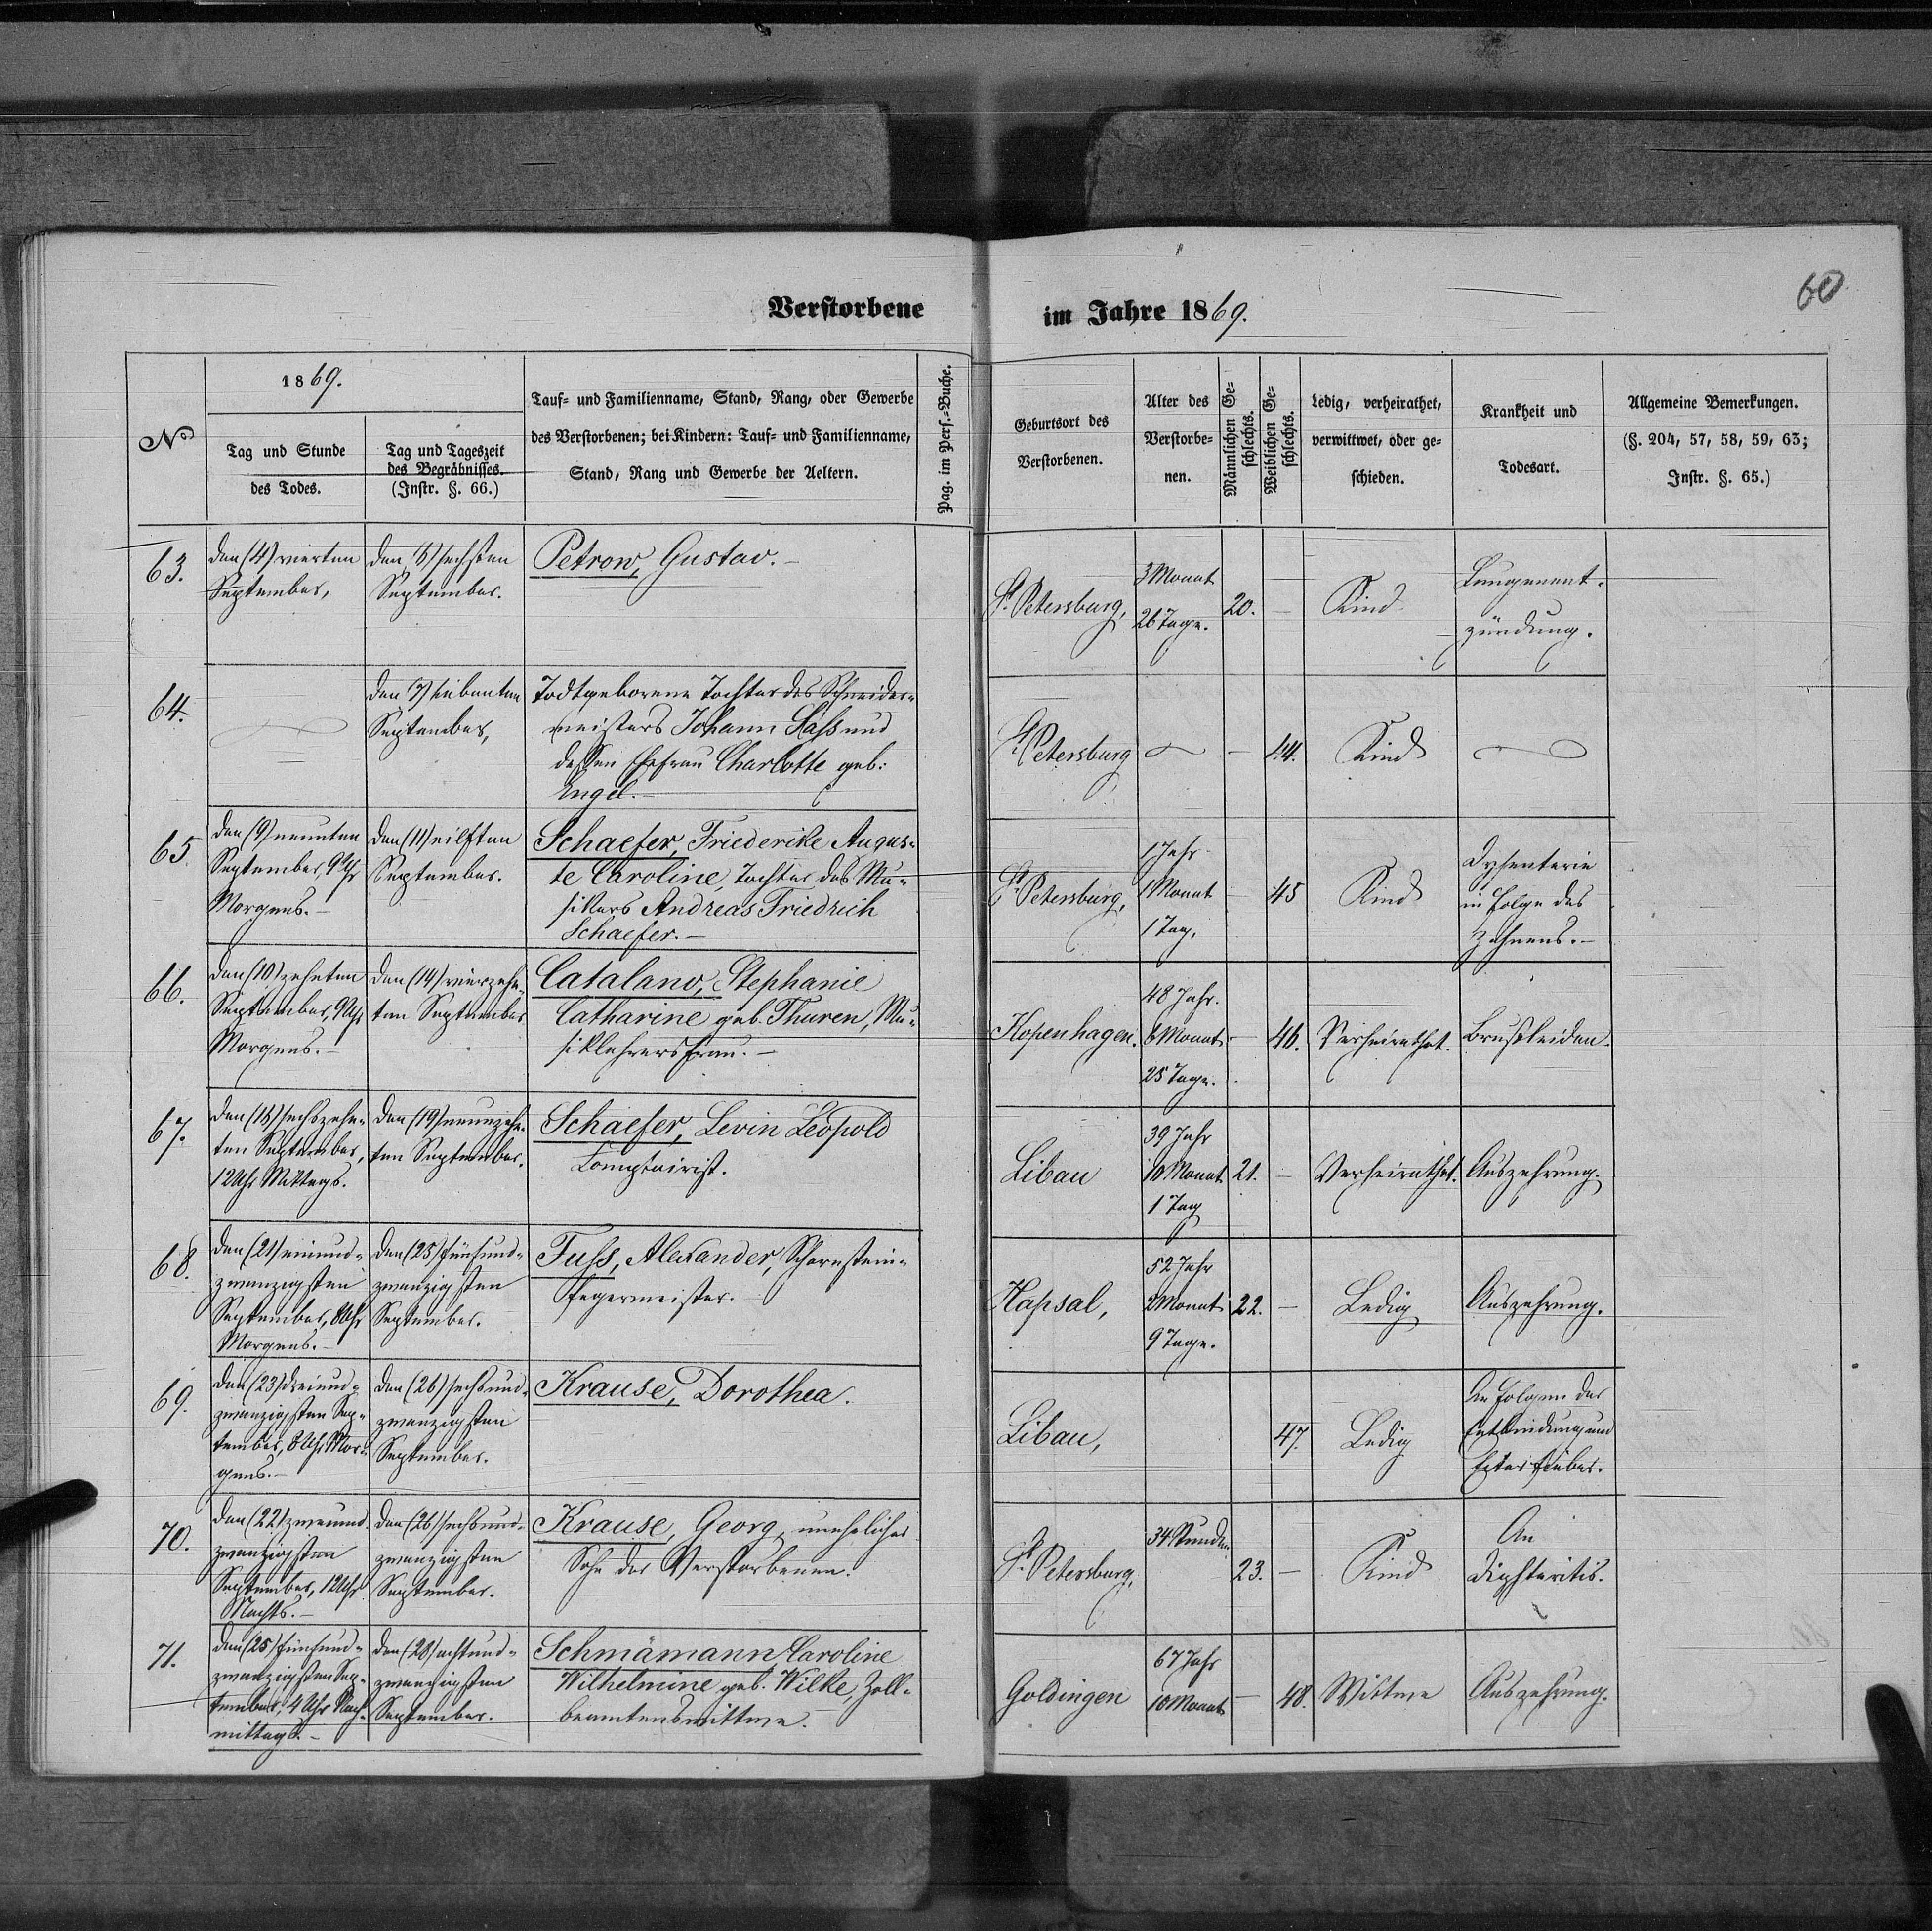 60
Verstorbene im Jahre 1869.
№
1869.
Tag und Stunde
des Todes.
Tag und Tageszeit
des Begräbnisses.
(Instr. §. 66.)
Tauf- und Familienname, Stand, Rang, oder Gewerbe
des Verstorbenen; bei Kindern: Tauf- und Familienname,
Stand, Rang und Gewerbe der Aeltern.
Pag. im Pers.-Buche.
Geburtsort des
Verstorbenen.
Alter des
Verstorbe-
nen.
Männlichen Ge-
schlechts.
Weiblichen Ge-
schlechts.
Ledig, verheirathet,
verwittwet, oder ge-
schieden.
Krankheit und
Todesart.
Allgemeine Bemerkungen.
(§. 204, 57, 58, 59, 63;
Instr. §. 65.)
63.
den (4) vierten
September,
den (6) sechsten
September.
Petrow, Gustav.-
St. Petersburg,
3 Monat
26 Tage.
20.
-
Kind
Lungenent-
zündung.
64.
den (7) siebenten
September,
Todtgeborene Tochter des Schneider-
meisters Johann Sass und
dessen Ehefrau Charlotte geb:
Engel.-
St. Petersburg
-
44.
Kind
65.
den (9) neunten
September, 9 Uhr
Morgens.-
den (11) eilften
September.
Schaefer, Friederike Augus-
te Caroline, Tochter des Mu-
sikers Andreas Friedrich
Schaefer.-
St. Petersburg,
1 Jahr
1 Monat
1 Tag,
-
45
Kind
Dysenterie
in Folge des
Zahnens.-
66.
den (10) zehnten
September, 9 Uhr
Morgens.-
den (14) vierzehn-
ten September
Catalano, Stephanie
Catharine geb. Thuren, Mu-
siklehrersfrau.-
Kopenhagen.
48 Jahr.
6 Monat
25 Tage.
-
46.
Verheirathet.
Brustleiden.
67.
den (16) sechszehn-
ten September,
12 Uhr Mittags.
den (19) neunzehn-
ten September.
Schaefer, Levin Leopold
Comptoirist.
Libau
39 Jahr
10 Monat
1 Tag
21.
-
Verheirathet.
Auszehrung.
68.
den (21) einund-
zwanzigsten
September, 8 Uhr
Morgens.-
den (25) fünfund-
zwanzigsten
September.
Fuss, Alexander, Schornstein-
fegermeister.
Hapsal,
52 Jahr
2 Monat
9 Tage.
22.
-
Ledig
Auszehrung.
69.
den (23) dreiund-
zwanzigsten Sep-
tember, 8 Uhr Mor-
gens.-
den (26) sechsund-
zwanzigsten
September.
Krause, Dorothea.
Libau,
47.
Ledig
An Folgen der
Entbindung und
Eiterfieber.
70.
den (22) zweiund-
zwanzigsten
September, 12 Uhr
Nachts.-
den (26) sechsund-
zwanzigsten
September.
Krause, Georg, unehelicher
Sohn der Verstorbenen.
St. Petersburg,
34 Stunden
23.
-
Kind
An
Diphteritis.
71.
den (25) fünfund-
zwanzigsten Sep-
tember, 4 Uhr Nach-
mittags.-
den (28) achtund-
zwanzigsten
September.
Schmämann, Caroline
Wilhelmine geb. Wilke, Zoll-
beamtenswittwe.
Goldingen
67 Jahr
10 Monat
-
48.
Wittwe
Auszehrung.